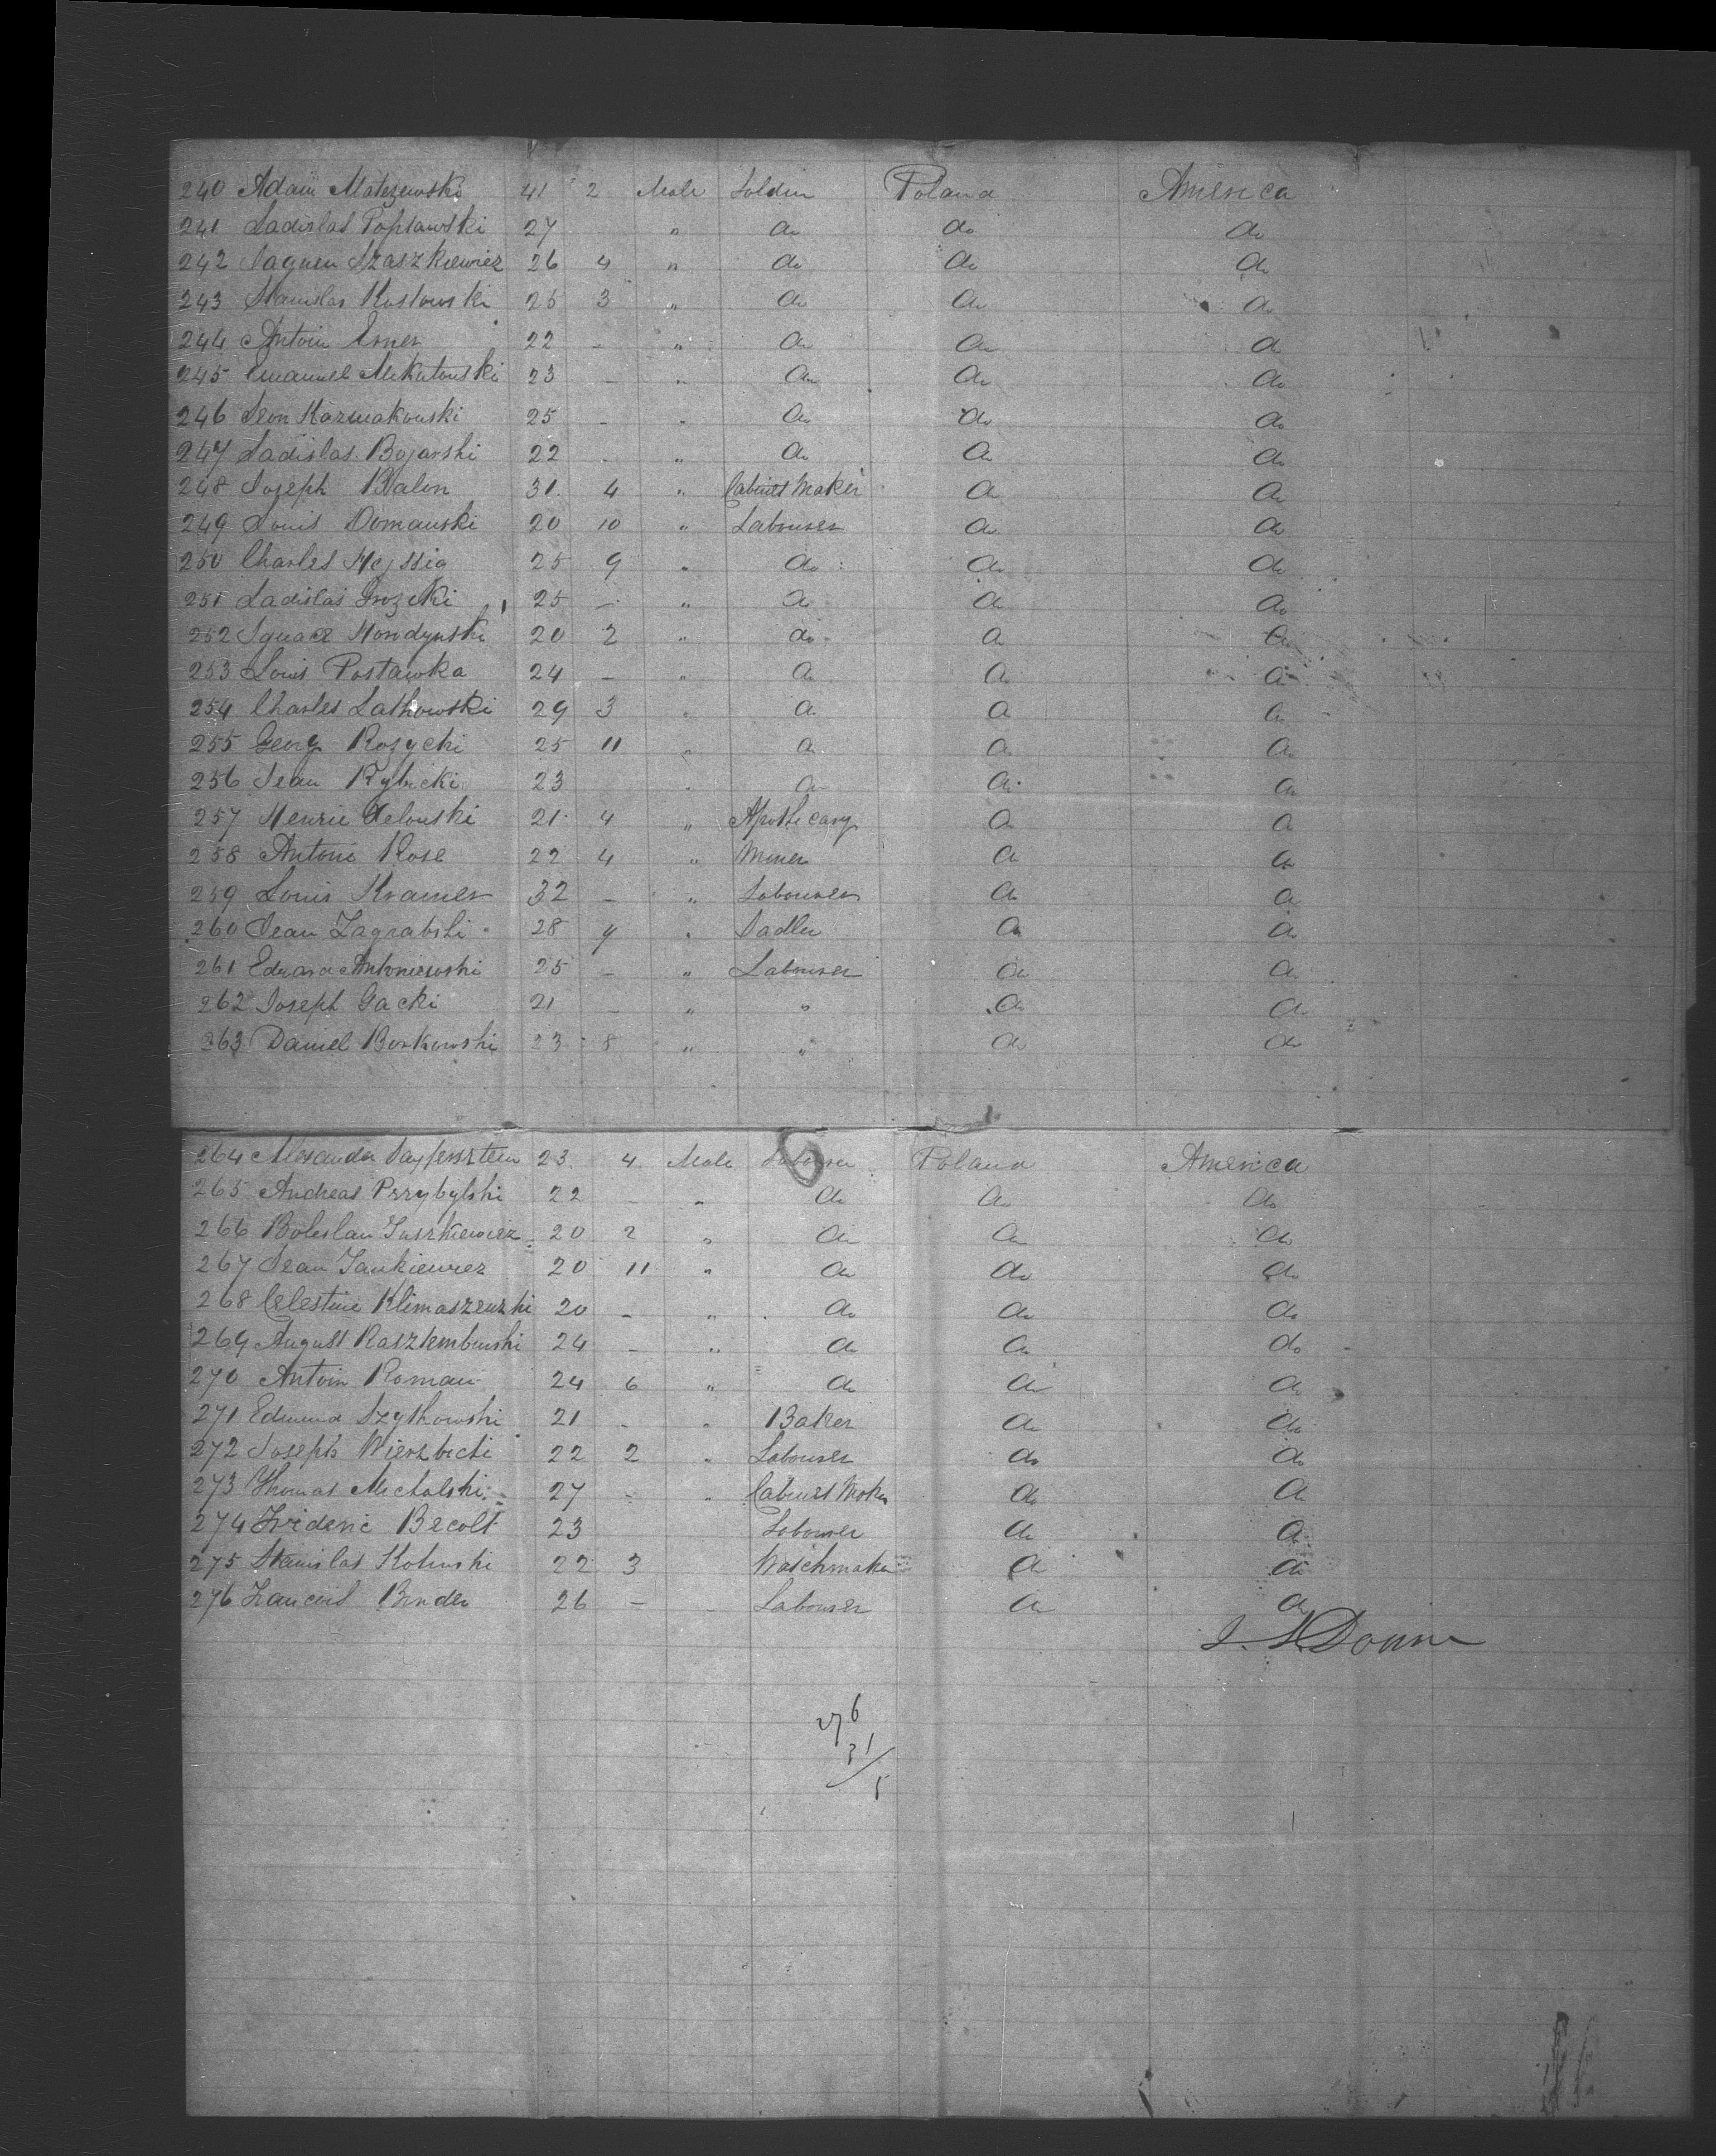 240 Adam Matezewski 41 2 Male Soldier Poland America
241 Ladislas Poplawski 27 " do do do
242 Szaszkiewiez 26 4 " do do do
243 Stanislas Kostowski 25 3 " do do do
244 Antoin Erner 22 - " do do do
245 Emanuel Mekutowski 23 - " do do do
246 Leon Kazmakowski 25 - " do do do
247 Ladislas Bojarski 22 - " do do do
248 Joseph Balon 31 4 " Cabinet Maker do do
249 Louis Domanski 20 10 " Labourer do do
250 Charles Heyssig 25 9 " do do do
251 Ladislas Grozcki 25 - " do do do
252 Ignace Horodynski 20 2 " do do do
253 Louis Postawka 24 - " do do do
254 Charles Lathowski 29 3 " do do do
255 Georg Rozycki 25 11 " do do do
256 Jean Rybicki 23 " do do do
257 Henrie 21 4 " Apothecary do do
258 Antoni Rose 22 4 " Miner do do
259 Louis Kramer 32 - " Labourer do do
260 Jean Zagrabski 28 4 " Sadler do do
261 Eduard Antoniewski 25 - " Labourer do do
262 Joseph Gacki 21 - " " do do
263 Daniel Borkowski 23 8 " " do do
264 Alexander 23 4 Male Labourer Poland America
265 Andreas Przybylski 22 - " do do do
266 Boleslau Juszkiewiez 20 2 " do do do
267 Jean Jankiewiez 20 11 " do do do
268 Celestine Klimaszewzki 20 - " do do do
269 August Rasztembwski 24 - " do do do
270 Antoin Roman 24 6 " do do do
271 Edmund Szythowski 21 - " Baker do do
272 Joseph Wierzbicki 22 2 " Labourer do do
273 Thomas Michalski 27 - " Cabinet Maker do do
274 Frideric Becolt 23 Labourer do do
275 Stanislas Kolinski 22 3 Watchmaker do do
276 Francois Binder 26 - Labourer do do
276
31
5